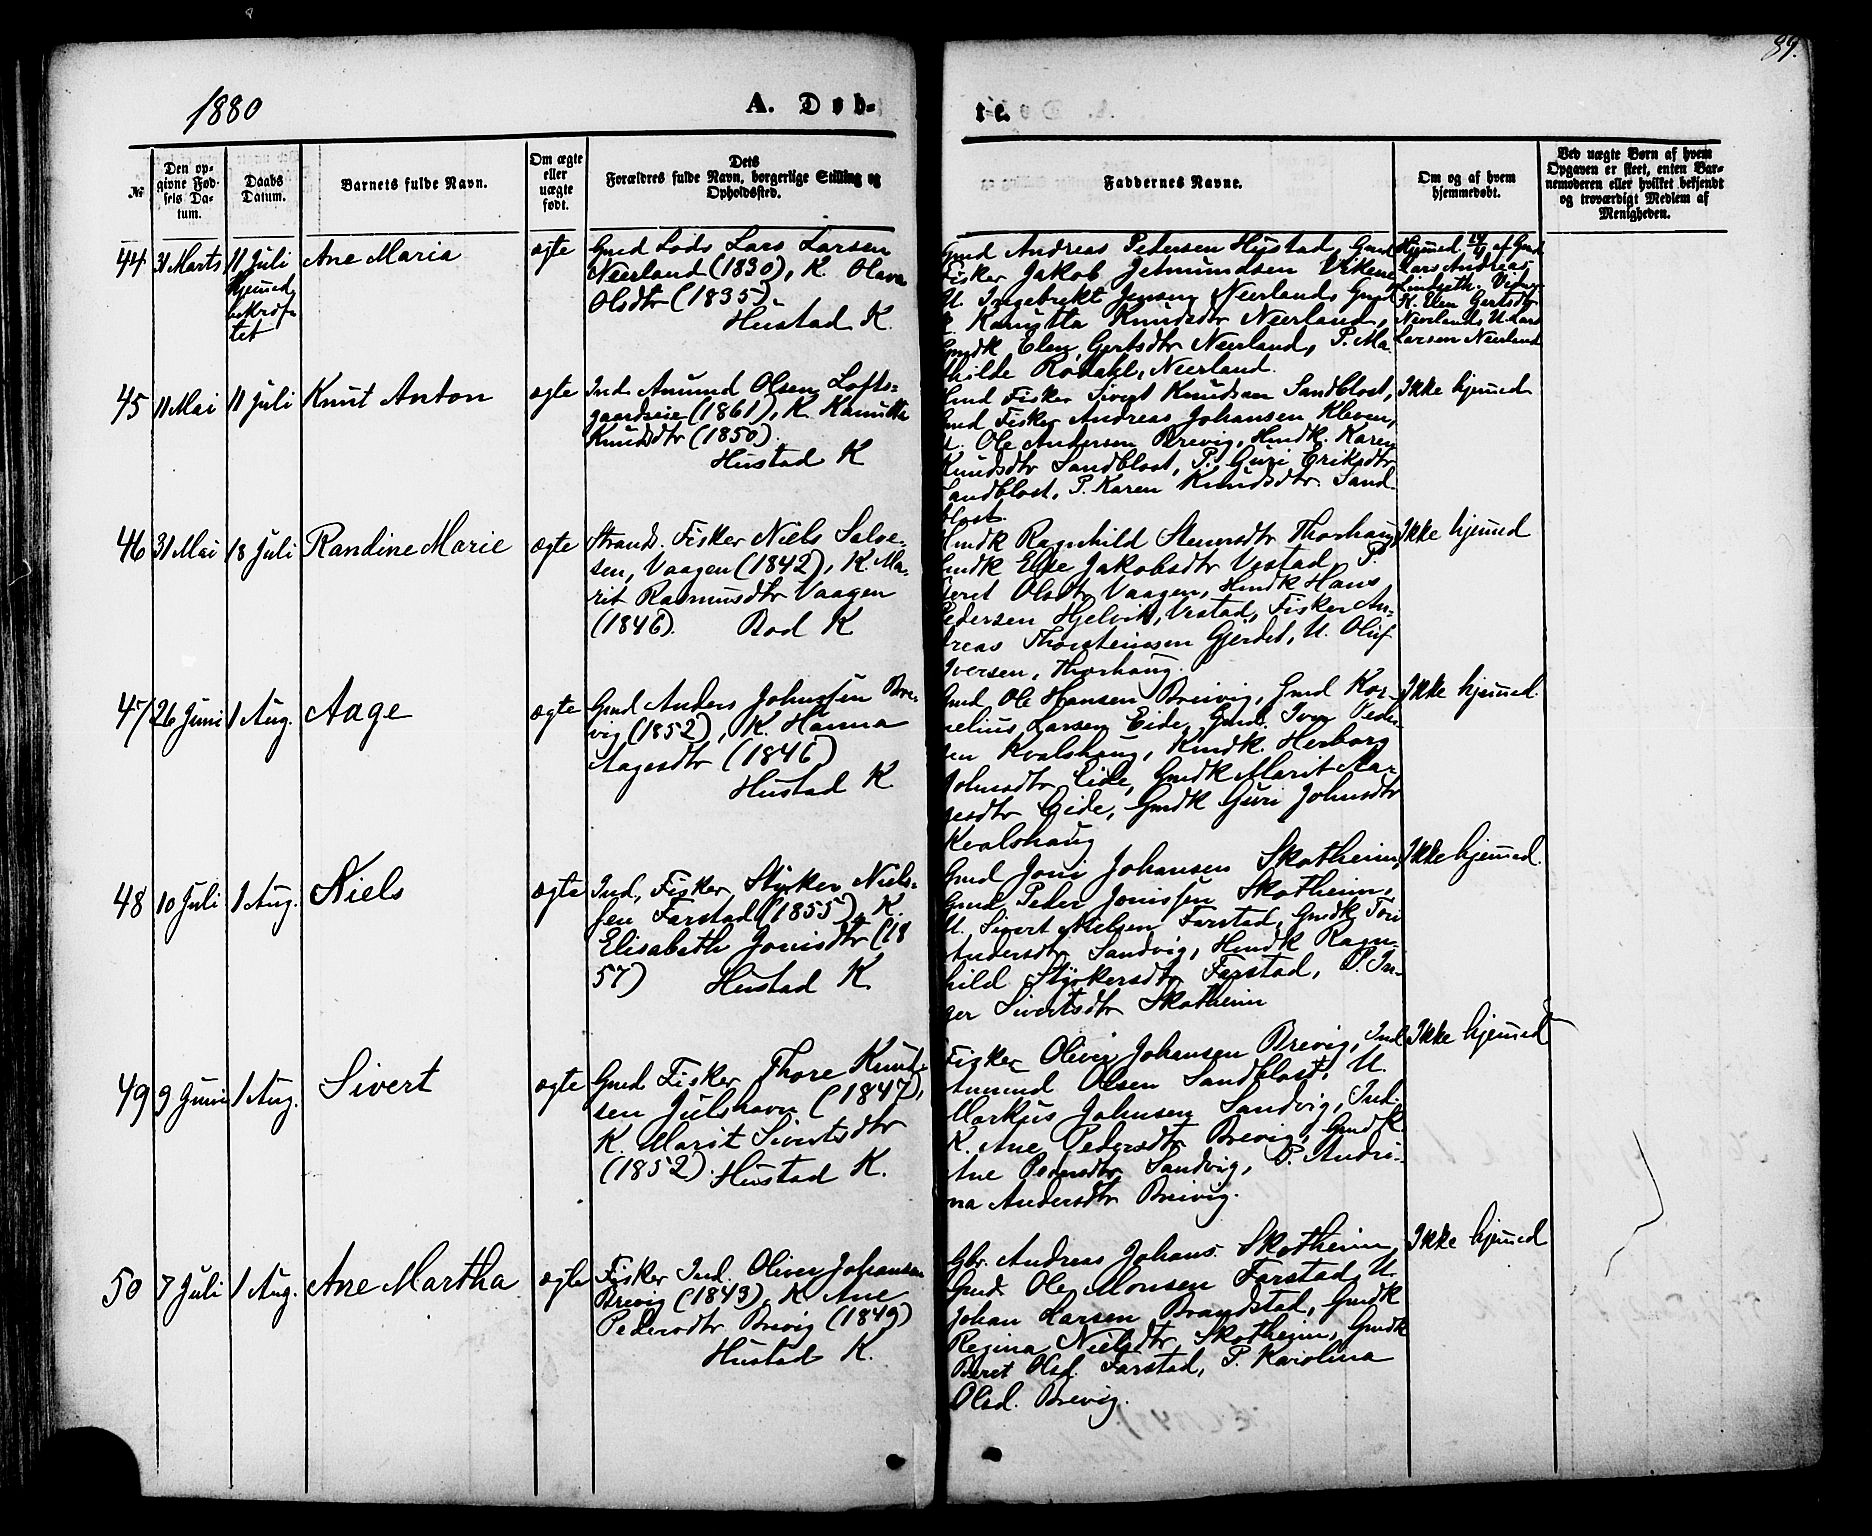 89.
1880
A. Døb-
te.
№
Den op-
givne Fød-
sels Da-
tum.
Daabs
Datum.
Barnets fulde Navn.
Om ægte
eller
uægte
født.
Dets
Forældres fulde Navn, borgerlige Stilling og
Opholdssted.
Faddernes Navne.
Om og af hvem
hjemmedøbt.
Ved uægte Børn af hvem
Opgaven er skeet, enten Bar-
nemoderen eller hvilket bekjendt
og troværdigt Medlem af
Menigheden.
44
31 Marts
11 Juli
hjemmed.
bekræf-
tet
Ane Maria
ægte
Gmd Lods Lars Larsen
Neerland (1830), K. Olava
Olsdtr (1835).
Hustad K.
Gmd Andreas Pedersen Hustad, Gmd
Fisker Jakob Jetmundsen Vikene
U. Ingebrikt Jensen Neerland, Gmd
K. Kanutta Knudsdtr Neerland,
Gmdk Elen Gertsdtr Neerland, P. Ma-
thilde Rødahl, Neerland.
Hjemmed af Gmd
Lars Andreas
K. Elen Gertsdtr
Neerland, U. Lars
Larsen Neerland
45
11 Mai
11 Juli
Knut Anton
ægte
Ind. Amund Olsen Lofts-
gaardseie (1861), K. Kanutta
Knudsdtr (1850).
Hustad K
Gmd Fisker Sivert Knudsen Sandblost,
Gmd Fisker Andreas Johansen Kleven,
U. Ole Andersen Brevig, Hmdk. Karen
Knudsdtr Sandblost, P. Guri Eriksdtr
Sandblost, P. Karen Knudsdtr Sand-
blost.
Ikke hjemmed
46
31 Mai
18 Juli
Randine Marie
ægte
Strands. Fisker Niels Salve-
sen, Vaagen (1842), K. Ma-
rit Rasmusdtr Vaagen
(1846). Bod K
Hmdk Ragnhild Steensdtr Thorhaug,
Gmdk Else Jakobsdtr Vestad, P.
Beret Olsdtr Vaagen, Hmdk Hans
Pedersen Hjelvik, Vestad, Fisker An-
dreas Thorsteinssen Gjerdet, U. Oluf
Iversen, Thorhaug.
Ikke hjemmed
47
26 Juni
1 Aug.
Aage
ægte
Gmd Anders Johnssen Bre-
vig (1852), K. Hanna
Aagesdtr (1846)
Hustad K
Gmd Ole Hansen Breivig, Gmd Kor-
nelius Larsen Eide, Gmd. Iver Peder-
sen Kvalshaug, Kmdk. Herborg
Johnsdtr Eide, Gmdk Marit Aa-
gesdtr Eide, Gmdk Guri Johnsdtr
Kvalshaug
Ikke hjemmed.
48
10 Juli
1 Aug.
Niels
ægte
Ind, Fisker Styrker Niels-
sen Farstad (1855), K.
Elisabeth Jonisdtr (18
57) Hustad K
Gmd Joni Johansen Skotheim,
Gmd Peder Jonissen Skotheim,
U. Sivert Nielsen Farstad, Gmdk Tori
Andersdtr Sandvig, Hmdk Ragn-
hild Styrkersdtr Farstad, P. In-
ger Sivertsdtr Skotheim
Ikke hjemmed.
49
9 Juni
1 Aug.
Sivert
ægte
Gmd Fisker Thore Knud-
sen Julshavn (1847),
K. Marit Sivertsdtr
(1852). Hustad K.
Fisker Oliver Johansen Brevig, Ind
Amund Olsen Sandblost, U.
Markus Johnsen Sandvig, Ind.
K. Ane Pedersdtr Brevig, Gmdk
Ane Pedersdtr Sandvig, P. Andri-
na Andersdtr Breivig.
Ikke hjemmed
50
7 Juli
1 Aug.
Ane Martha
ægte
Fisker Ind. Oliver Johansen
Brevig (1843), K. Ane
Pedersdtr Brevig (1849)
Hustad K.
Gbr. Andreas Johans. Skotheim,
Gmd. Ole Monsen Farstad, U.
Johan Larsen Brandstad, Gmdk
Regina Nielsdtr Skotheim, Gmdk
Beret Olsd. Farstad, P. Karolina
Olsd. Brevig.
Ikke hjemmed